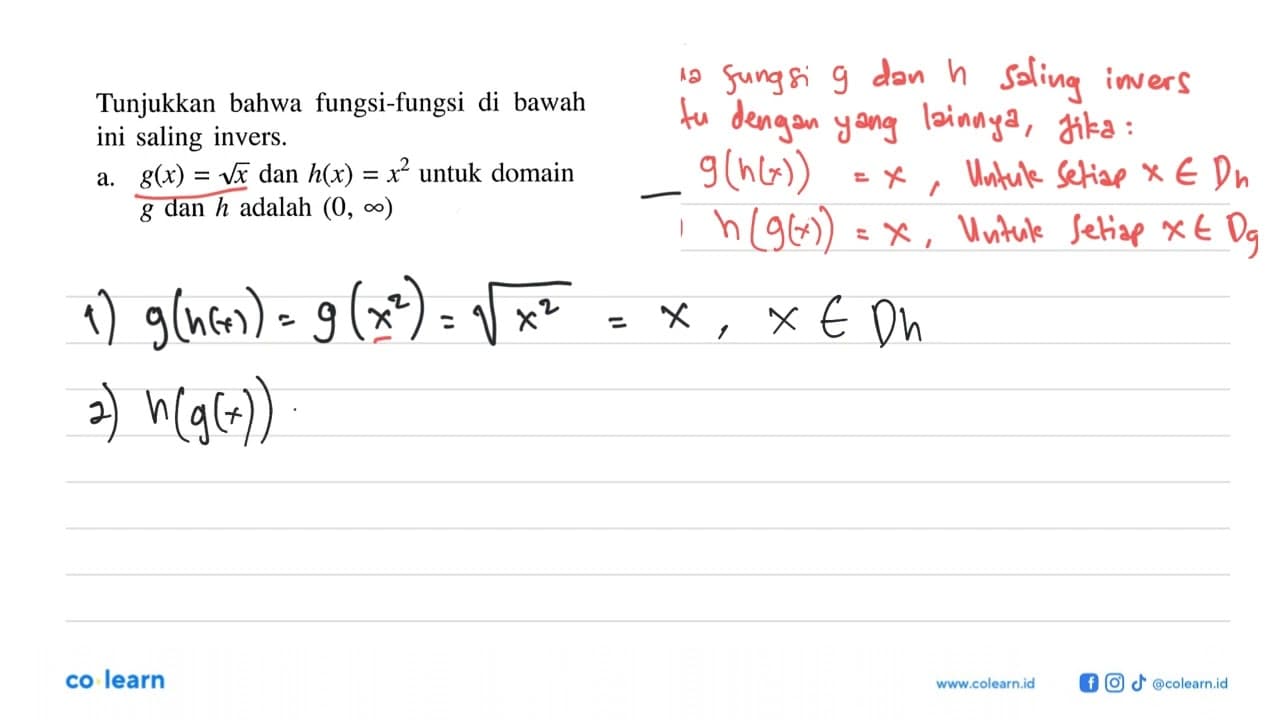 Tunjukkan bahwa fungsi-fungsi di bawah
ini saling invers.
a. g(x) = √x dan h(x) = x² untuk domain
g dan h adalah (0, ∞)
fungsi g dan h saling invers
tu dengan yang lainnya, jika :
g(h(x)) = x , Untuk Setiap x ∈ Dh
h(g(x)) = x , Untuk Setiap x ∈ Dg
1) g(h(x)) = g(x²) = √x² = x , x ∈ Dh
2) h(g(x))
co learn
www.colearn.id
@colearn.id